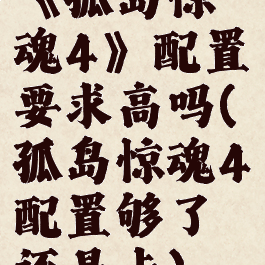 《孤岛惊
魂4》配置
要求高吗(
孤岛惊魂4
配置够了
还是卡)